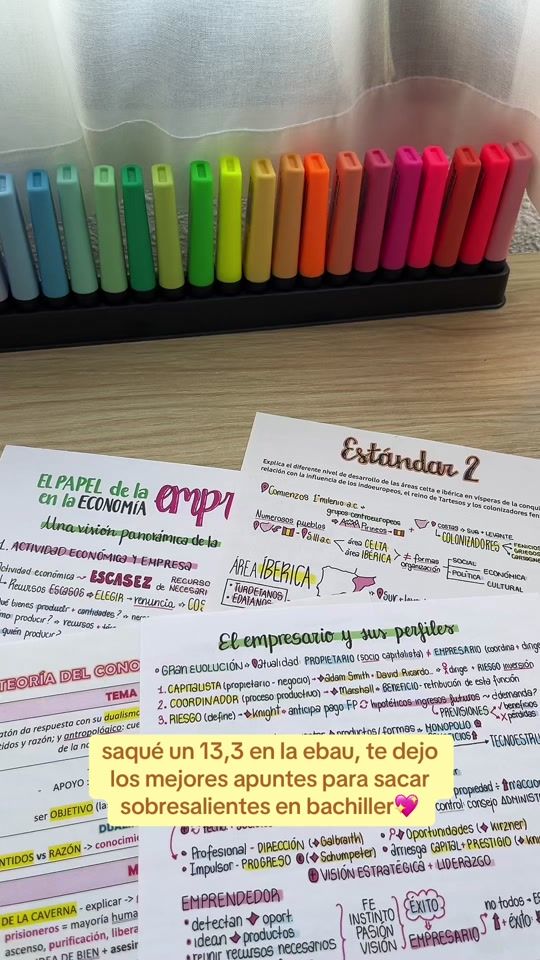 EL PAPEL de la
en la ECONOMÍA
Una visión panorámica de la
1. ACTIVIDAD ECONÓMICA Y EMPRESA
Actividad económica ~ ESCASEZ
RECURSO
de NECESARI
Recursos ESCASOS → ELEGIR → renuncia → COS
quién producir?
Estándar 2
Explica el diferente nivel de desarrollo de las áreas celta e ibérica en vísperas de la conqui
relación con la influencia de los indoeuropeos, el reino de Tartesos y los colonizadores fen
Comienzos I milenio a.c.
grupos centroeuropeos
Numerosos pueblos
costas → sur + levante
COLONIZADORES
FENICIOS
GRIEGOS
área CELTA
área IBERICA
≠ formas
organización
SOCIAL
POLÍTICA
ECONÓMICA
CULTURAL
ÁREA IBÉRICA
• TURDETANOS
• EDATANOS
TEORÍA DEL CONO
TEMA
razón da respuesta con su dualismo
antropológico: cue
de la no
- APOYO
ser OBJETIVO (las
NTIDOS vs RAZÓN → conocimie
DE LA CAVERNA - explicar →
prisioneros = mayoría humа
ascenso, purificación, libera
IDEA DE BIEN + asemi
El empresario y sus perfiles
• GRAN EVOLUCIÓN → Actualidad PROPIETARIO (socio capitalista) ≠ EMPRESARIO (coordina + dirige
1. CAPITALISTA (propietario - negocio) → Adam Smith + David Ricardo.. dirige + RIESGO inversión
2. COORDINADOR (proceso productivo) → Marshall + BENEFICIO - retribución de esta función
3. RIESGO (define) → knight → anticipa pago FP hipotéticos ingresos futuros ~ ¿demanda?
PREVISIONES
beneficios
pérdidas
productos / formas → MONOPOLIO
TECNOESTRU
saqué un 13,3 en la ebau, te dejo
los mejores apuntes para sacar
sobresalientes en bachiller💖
propiedad
control: consejo ADMINIST
• Profesional - DIRECCIÓN (Galbraith)
• Oportunidades (Kirzner)
• Impulsor - PROGRESO (Schumpeter)
• arriesga CAPITAL + PRESTIGIO (kn
VISIÓN ESTRATÉGICA + LIDERAZGO
EMPRENDEDOR
• detectan oport.
• idean productos
• reunir recursos necesarios
FE
INSTINTO
PASIÓN
VISIÓN
ÉXITO
EMPRESARIO
no todos
éxito